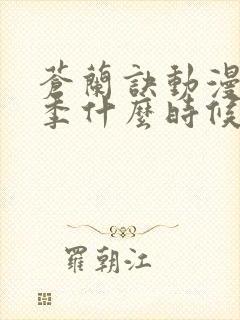 蒼蘭訣動漫
季什麼時候
羅朝江